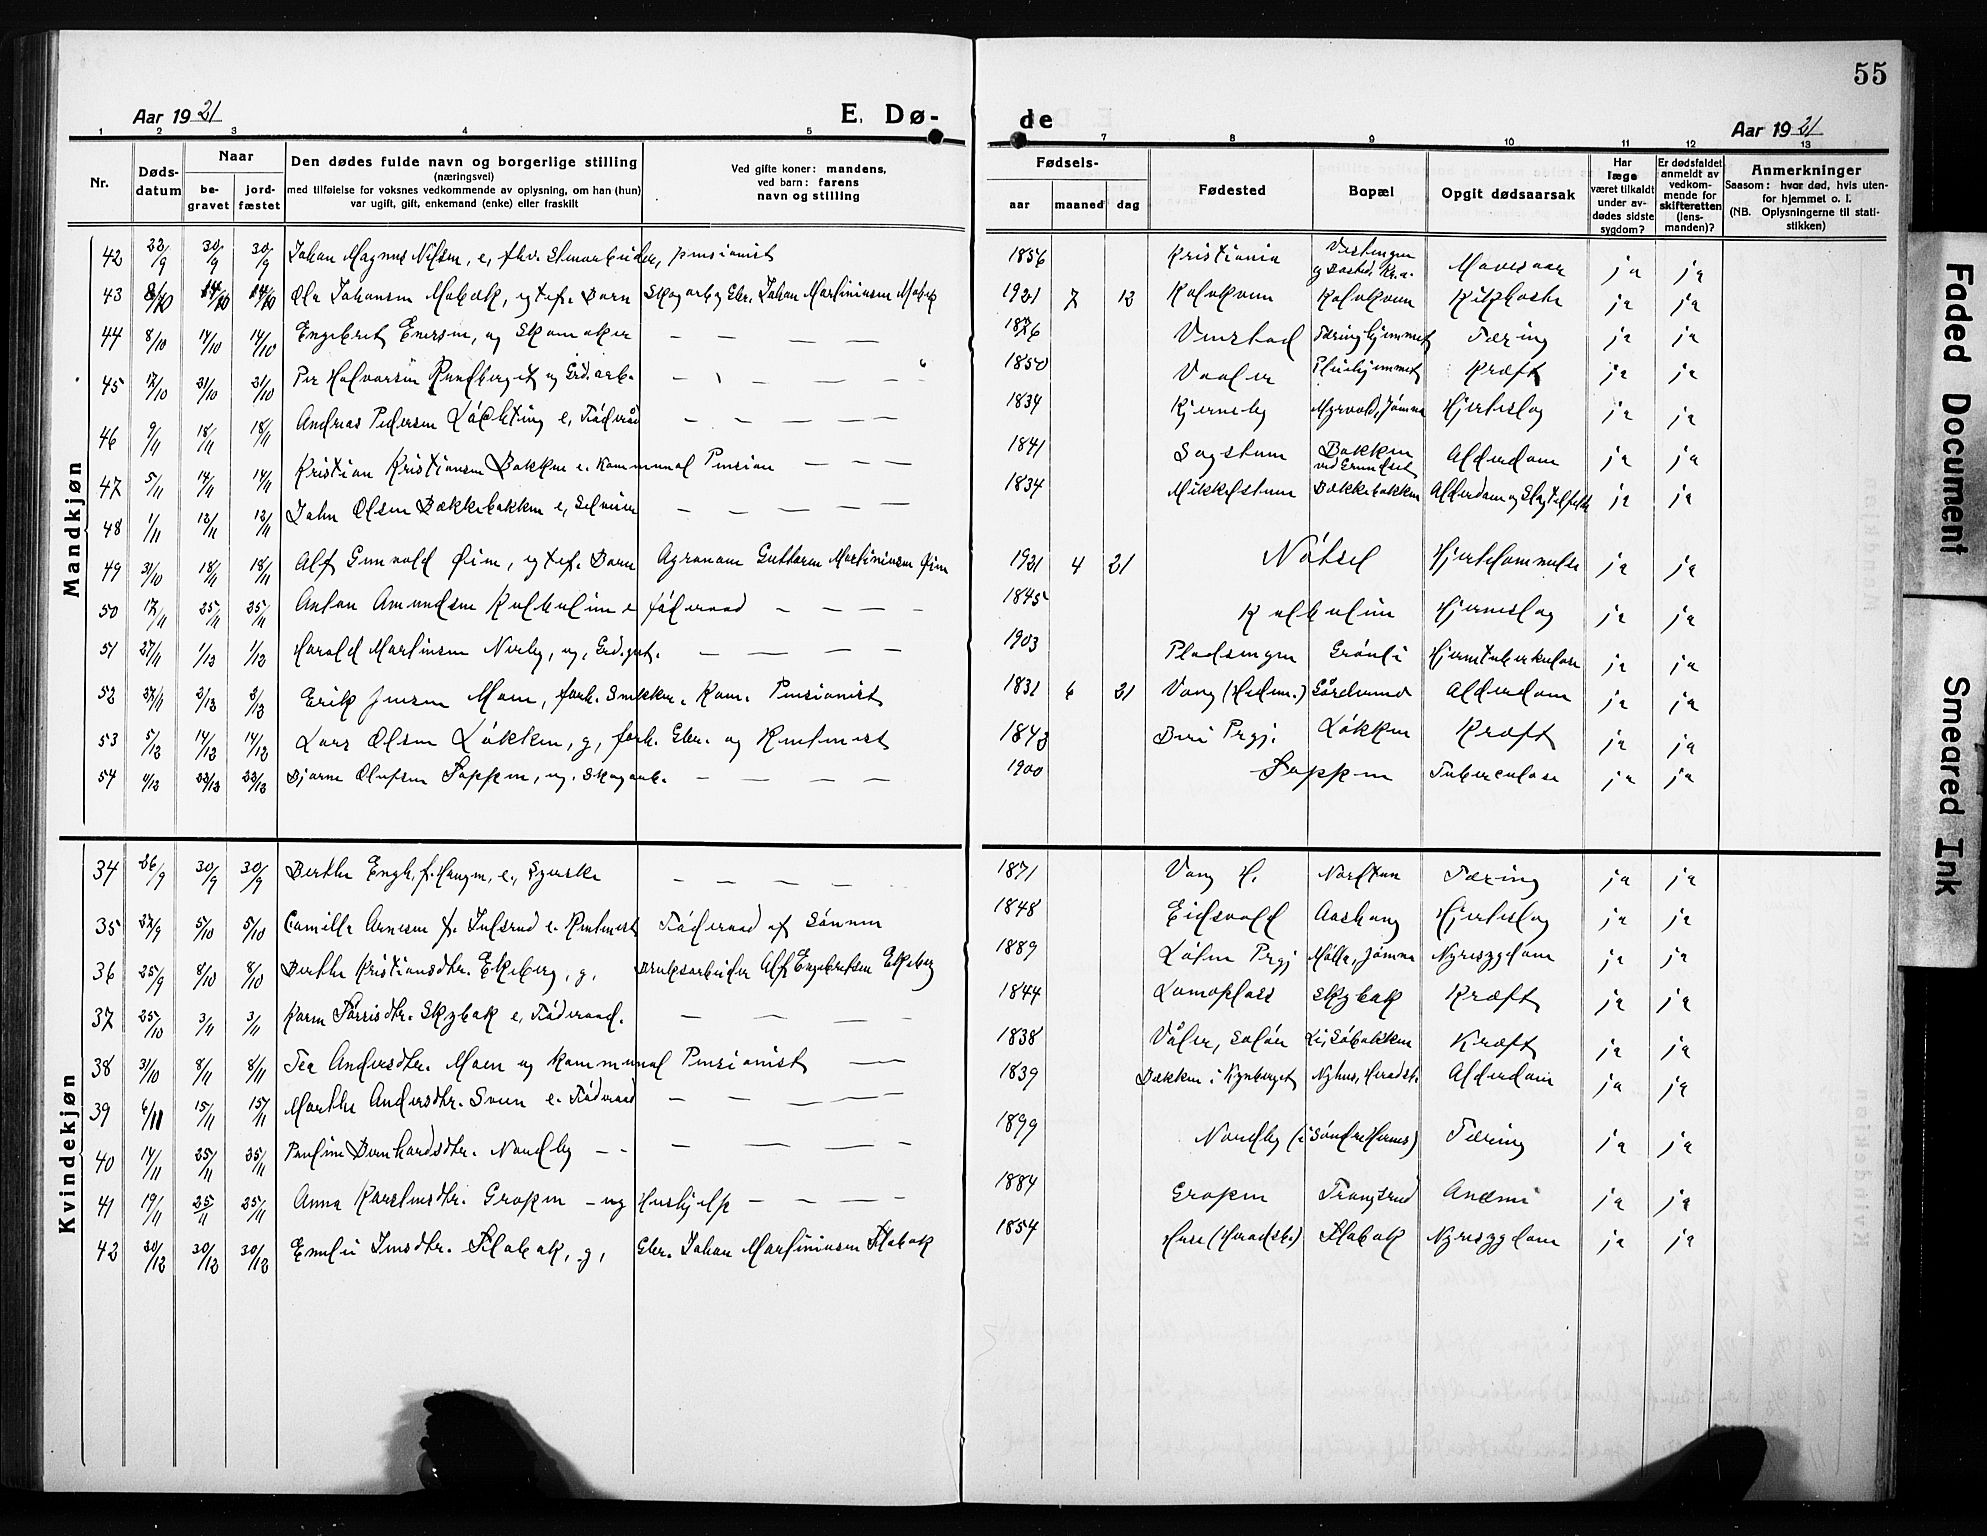 55
Aar 1921
E. Dø-
de
Aar 1921
1 2 3 4 5 7 8 9 10 11 12 13
Nr.
Døds-
datum
Naar
be-
gravet
jord-
fæstet
Den dødes fulde navn og borgerlige stilling
(næringsvei)
med tilføielse for voksnes vedkommende av oplysning, om han (hun)
var ugift, gift, enkemand (enke) eller fraskilt
Ved gifte koner: mandens,
ved barn: farens
navn og stilling
Fødsels-
aar maaned dag
Fødested
Bopæl
Opgit dødsaarsak
Har
læge
været tilkaldt
under av-
dødes sidste
sygdom?
Er dødsfaldet
anmeldt av
vedkom-
mende for
skifteretten
(lens-
manden)?
Anmerkninger
Saasom: hvor død, hvis uten-
for hjemmet o. l.
(NB. Oplysningerne til stati-
stikken)
Mandkjøn
42 22/9 30/9 30/9 Johan Magnus Nilsen, e, fhv. Stenarbeider, pensionist 1856 Kristiania Mavesaar ja ja
43 14/10 14/10 Ole Johansen Mobæk, egtef. Barn Skogarb og Gbr. Johan Martiniusen Mobæk 1921 7 12 Kolvkven Kolvkven Kikhoste ja ja
44 8/10 14/10 14/10 Engebret Enersen, ug Skomaker — — — — 1876 Tæringhjemmet Tæring ja ja
45 17/10 21/10 21/10 Per Halvorsen Rundberget ug Grd.arb. — — — — 1850 Vaaler Pleiehjemmet Kræft ja ja
46 9/11 18/11 18/11 Andreas Pedersen Løchting e, Føderåd — — — — 1834 Kjerneby Myrvold, Jømna Hjerteslag ja ja
47 5/11 14/11 14/11 Kristian Kristiansen Bakken e. Kommunal Pension — — — 1841 Sagstuen Bakken ved Grundset Alderdom ja ja
48 1/11 12/11 12/11 John Olsen Bækkebakken e, Selveier — — — — 1834 Mikkelstuen Bækkebakken Alderdom og Slagtilfælde ja ja
49 31/10 18/11 18/11 Alf Gunvald Øien, egtef. Barn Agronom Guttorm Martiniusen Øien 1921 4 21 Nötsel ja ja
50 17/11 25/11 25/11 Anton Amundsen Kulbulien e føderaad — — — — 1845 Kulbulien Hjerneslag ja ja
51 27/11 1/12 1/12 Harald Martinsen Nerby, ug, Grd.gut. — — — — 1903 Pladsengen Grønli Hjernetuberkulose ja ja
52 27/11 2/12 2/12 Erik Jensen Moen, forh. Snekker. Kom. Pensionist 1831 6 21 Vang (Hedm.) Sörlund Alderdom ja ja
53 5/12 14/12 14/12 Lars Olsen Løkken, g, forh. Gbr. og Rentenist 1843 Biri Prgj. Løkken Kræft ja ja
54 4/12 23/12 23/12 Bjarne Olufsen Soppen, ug. Skogarb. — — — — 1900 Soppen Tuberculose ja ja
Kvindekjøn
34 26/9 30/9 30/9 Berthe Engh, f. Haugen, e, — — — — 1871 Vang H. Nordtun Tæring ja ja
35 27/9 5/10 5/10 Camilla Arnesen f. Julsrud e. Rentenist Føderaad af Sønnen 1848 Eidsvold Aashaug Hjerteslag ja ja
36 25/9 8/10 8/10 Berthe Kristiansdtr. Ekeberg, g, Bruksarbeider Alf Engebretsen Ekeberg 1889 Løten Prgj Mølla, Jømna Nyresygdom ja ja
37 25/10 3/11 3/11 Karen Tørrisdtr. Skybak e, Føderaad. — — — — 1844 Lomoplass Skybak Kræft ja ja
38 31/10 8/11 8/11 Tea Andersdtr. Moen ug kommunal Pensionist — 1838 Våler, Solør Li, Søbakken Kræft ja ja
39 6/11 15/11 15/11 Marthe Andersdtr. Sveen e. Føderaad — — — — 1839 Bækken i Kynberget Nyhus, Heradsb. Alderdom ja ja
40 14/11 25/11 25/11 Pauline Bernhardsdtr. Nordby — — — — — — 1899 Nordby (i Søndre Hernes) Tæring ja ja
41 19/11 25/11 25/11 Anna Karelinsdtr. Gropen — ug Hushjelp — — — — 1884 Gropen Trangsrud Anæmi ja ja
42 20/12 30/12 30/12 Emilie Jensdtr. Flobak, g, Gbr. Johan Martiniusen Flobak 1854 (Heradsb.) Flobak Nyresygdom ja ja
Faded Document
Smeared Ink